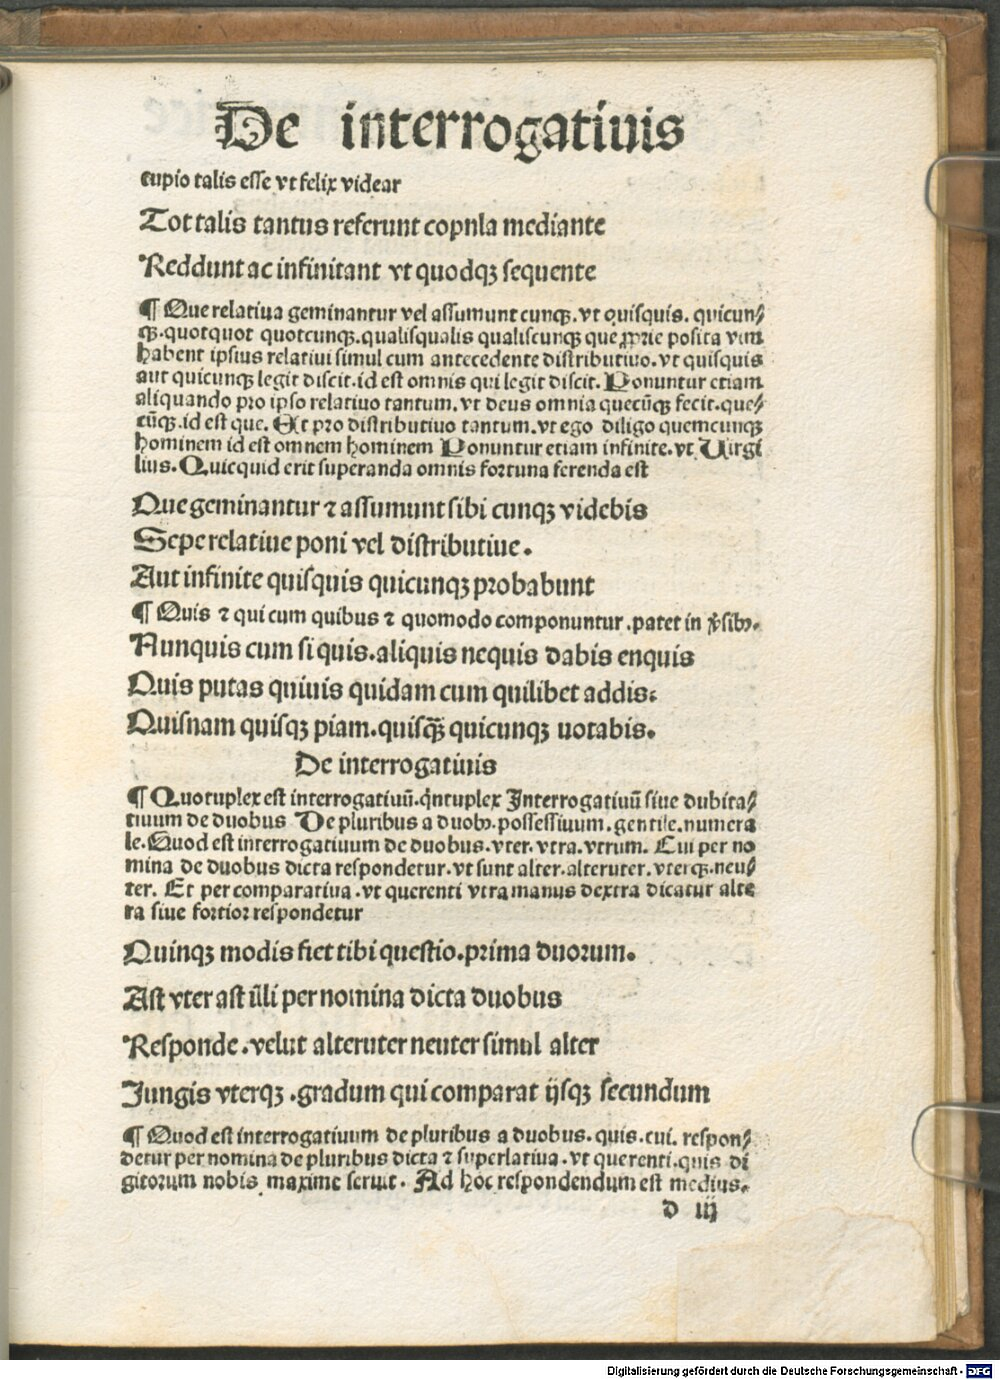 De interrogatiuis
cupio talis esse vt felix videar
Tot talis tantus referunt copnla mediante
Reddunt ac infinitant vt quodqꝫ sequente
¶ Que relatiua geminantur vel assumunt cunqꝫ. vt quisquis. quicun⸗
qꝫ. quotquot quotcunqꝫ. qualisqualis qualiscunqꝫ que ꝓprie posita vim
habent ipsius relatiui simul cum antecedente distributiuo. vt quisquis
aut quicunqꝫ legit discit. id est omnis qui legit discit. Ponuntur etiam
aliquando pro ipso relatiuo tantum. vt deus omnia quecũqꝫ fecit. que⸗
cũqꝫ. id est que. Et pro distributiuo tantum. vt ego diligo quemcunqꝫ
hominem id est omnem hominem Ponuntur etiam infinite. vt Uirgi
lius. Quicquid erit superanda omnis fortuna ferenda est
Que geminantur ⁊ assumunt sibi cunqꝫ videbis
Sepe relatiue poni vel distributiue.
Aut infinite quisquis quicunqꝫ probabunt
¶ Quis ⁊ qui cum quibus ⁊ quomodo componuntur . patet in v̄sibꝫ.
Nunquis cum si quis. aliquis nequis dabis enquis
Quis putas quiuis quidam cum quilibet addis:
Quisnam quisqꝫ piam. quisq̄ꝫ quicunqꝫ uotabis.
De interrogatiuis
¶ Quotuplex est interrogatiuũ. q̇ntuplex Interrogatiuũ siue dubita⸗
tiuum de duobus De pluribus a duobꝫ. possessiuum. gentile. numera
le. Quod est interrogatiuum de duobus. vter. vtra. vtrum. Cui per no
mina de duobus dicta respondetur. vt sunt alter. alteruter. vterqꝫ. neu⸗
ter. Et per comparatiua . vt querenti vtra manus dextra dicatur alte
ra siue fortior respondetur
Quinqꝫ modis fiet tibi questio. prima duorum.
Ast vter ast ũli per nomina dicta duobus
Responde . velut alteruter neuter simul alter
Jungis vterqꝫ . gradum qui comparat ijsqꝫ secundum
¶ Quod est interrogatiuum de pluribus a duobus. quis. cui. respon⸗
detur per nomina de pluribus dicta ⁊ superlatiua. vt querenti. quis di
gitorum nobis maxime seruit. Ad hoc respondendum est medius.
d iij
Digitalisierung gefördert durch die Deutsche Forschungsgemeinschaft - DFG